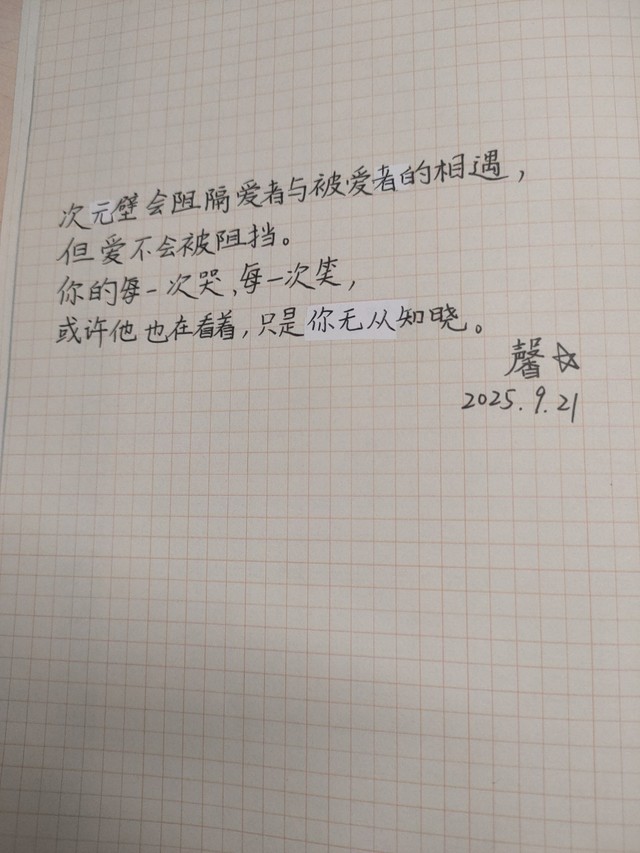 次元壁会阻隔爱者与被爱者的相遇，
但爱不会被阻挡。
你的每一次哭、每一次笑，
或许他也在看着，只是你无从知晓。
馨☆
2025.9.21